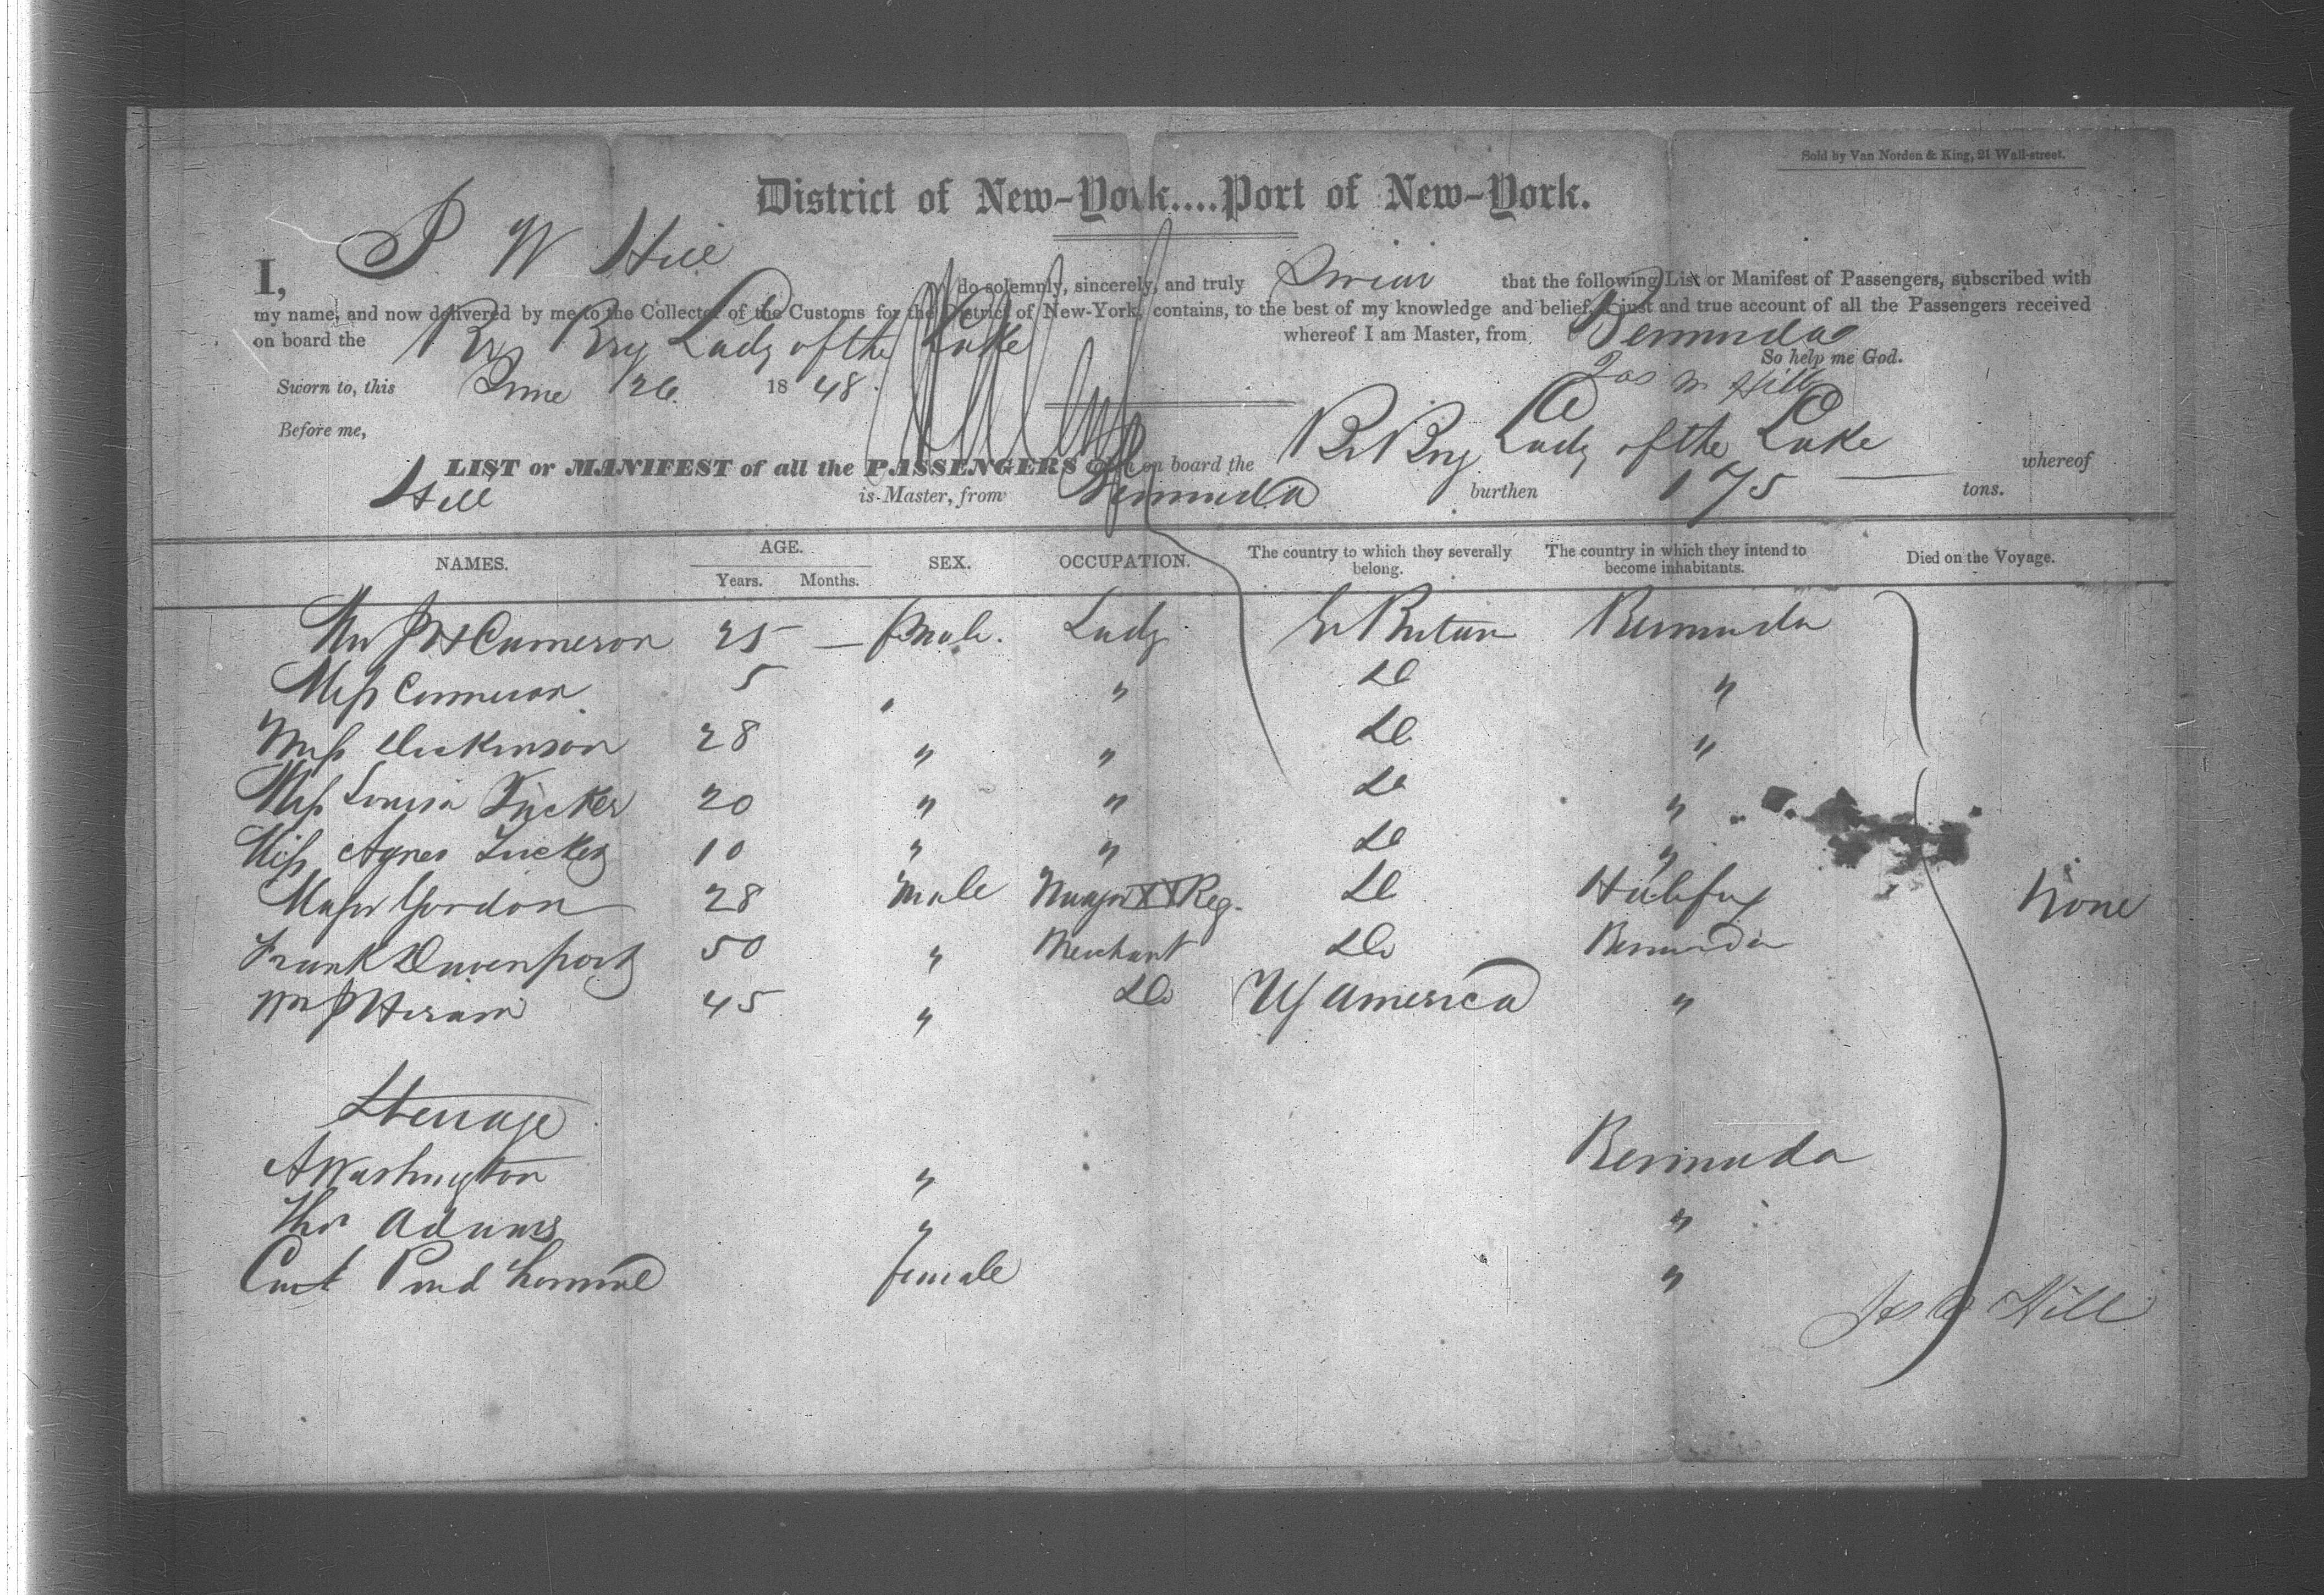 Sold by Van Norden & King, 21 Wall-street.
District of New-York....Port of New-York.
I, J W Hill do solemnly, sincerely, and truly Swear that the following List or Manifest of Passengers, subscribed with
my name, and now delivered by me to the Collector of the Customs for the District of New-York, contains, to the best of my knowledge and belief, a just and true account of all the Passengers received
on board the Br Brig Lady of the Lake whereof I am Master, from Bermuda
So help me God.
Sworn to, this June 26 1848. Jas W Hill
Before me,
LIST or MANIFEST of all the PASSENGERS on board the Br Brig Lady of the Lake whereof
Hill is Master, from Bermuda burthen 175 tons.
NAMES. AGE. Years. Months. SEX. OCCUPATION. The country to which they severally belong. The country in which they intend to become inhabitants. Died on the Voyage.
Cameron 25 — female. Lady Gr Britain Bermuda
Miss Cameron 5 " " Do "
Miss Dickinson 28 " " Do "
Miss Louisa Tucker 20 " " Do "
Miss Agnes Tucker 10 " " Do "
Major Gordon 28 Male Major Reg. Do Halifax None
Frank Davenport 50 " Merchant Do Bermuda
Wm 45 " Do US America "
Steerage
A Washington " Bermuda
Thos Adams " "
female "
Jas W Hill